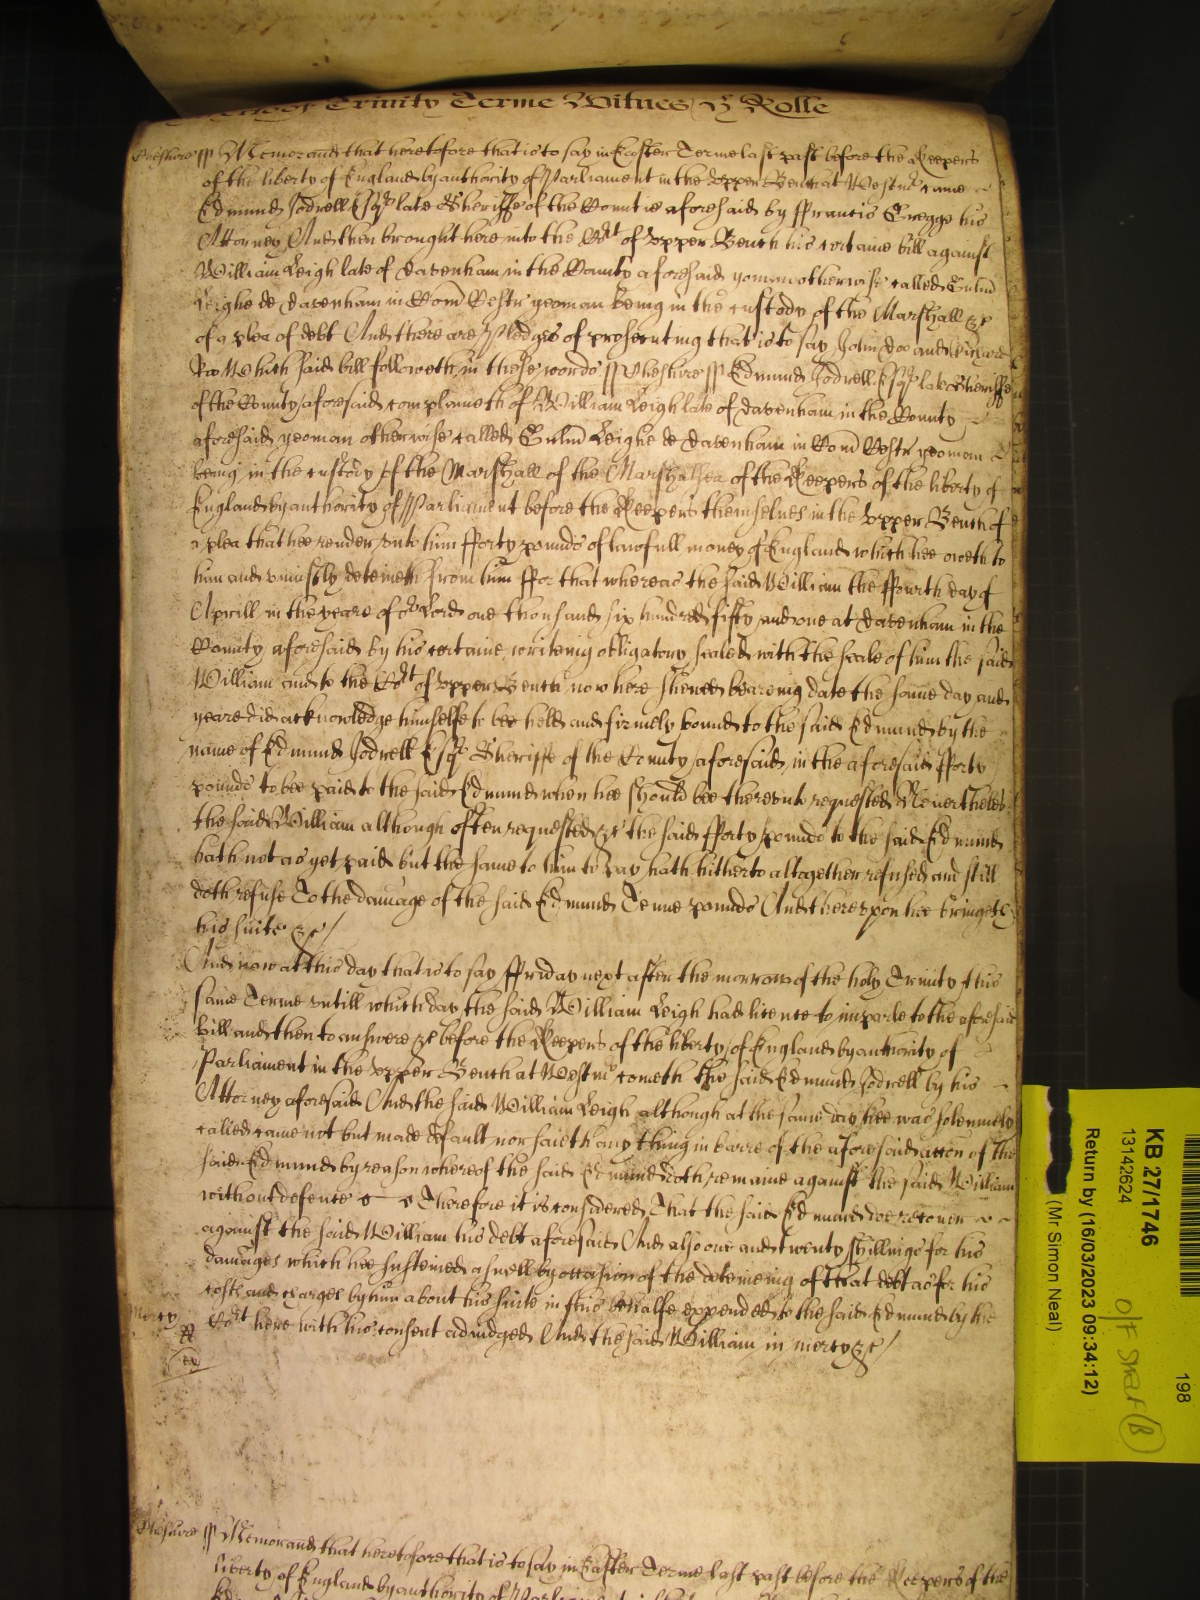 of Trinity Terme Witnes H Rolle
Cheshire ss Memorand that heretofore that is to say in Easter Terme last past before the Keepers
of the liberty of England by authority of Parliament in the Upper Bench at Westmr came
Edmund Jodrell Esqr late Sheriffe of the Countie aforesaid by ffrancis Gregge his
Attorney And then brought here into the Court of Upper Bench his certaine bill against
William Leigh late of Davenham in the County aforesaid yoman otherwise called Gulm
Leighe de Davenham in Com Cestr yeoman being in the custody of the Marshall &c
of a plea of debt And there are pledges of prosecuting that is to say John Doe and Richard
Roe Which said bill followeth in these words ss Cheshire ss Edmund Jodrell Esqr late Sheriffe
of the County aforesaid complaineth of William Leigh late of Davenham in the County
aforesaid yeoman otherwise called Gulm Leighe de Davenham in Com Cestr yeoman
being in the custody of the Marshall of the Marshalsea of the Keepers of the liberty of
England by authority of Parliament before the Keepers themselves in the Upper Bench of
a plea that hee render unto him fforty pounds of lawfull money of England which hee oweth to
him and uniustly deteineth from him ffor that whereas the said William the ffourth day of
Aprill in the yeare of or Lord one thousand six hundred fifty and one at Davenham in the
County aforesaid by his certaine writeing obligatory sealed with the seale of him the said
William and to the Court of Upper Bench now here shewed beareing date the same day and
yeare did acknowledge himselfe to bee held and firmely bound to the said Edmund by the
name of Edmund Jodrell Esqr Sheriffe of the County aforesaid in the aforesaid fforty
pounds to bee paid to the said Edmund when hee should bee thereunto requested Neverthelesse
the said William although often requested &c the said fforty pounds to the said Edmund
hath not as yet paid but the same to him to pay hath hitherto altogether refused and still
doth refuse To the damage of the said Edmund Tenne pounds And thereupon hee bringeth
his suite &c/
And now at this day that is to say ffriday next after the morrow of the holy Trinity this
same Terme untill which day the said William Leigh had licence to imparle to the aforesaid
bill and then to answere &c before the Keepers of the liberty of England by authority of
Parliament in the Upper Bench at Westmr cometh the said Edmund Jodrell by his
Attorney aforesaid And the said William Leigh although at the same day hee was solemnely
called came not but made default nor saieth any thing in barre of the aforesaid accon of the
said Edmund by reason whereof the said Edmund doth remaine against the said William
without defence Therefore it is considered That the said Edmund doe recover
against the said William his debt aforesaid And also one and twenty shillings for his
damages which hee susteined aswell by occasion of the deteineing of that debt as for his
costs and charges by him about his suite in this behalfe expended to the said Edmund by the
Mercy Court here with his consent adiudged And the said William in mercy &c/
Cheshire ss Memorand that heretofore that is to say in Easter Terme last past before the Keepers of the
liberty of England by authority of Parliament
198
O/F SMALL (B)
KB 27/1746
13142624
Return by (16/03/2023 09:34:12)
(Mr Simon Neal)